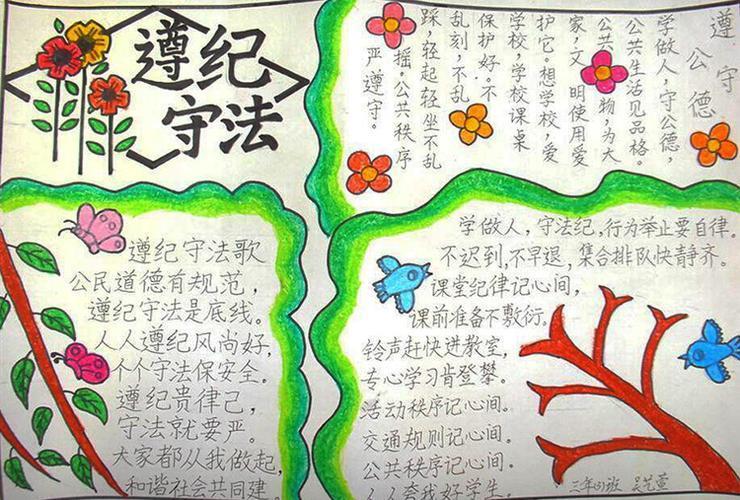 遵纪
守法
遵守
公德
学做人,守公德,
公共生活见品格。
公共物,为大
家,文明使用爱
护它。想学校,爱
学校,学校课桌
保护好。不
乱刻,不乱
踩,轻起轻坐不乱
摇。公共秩序
严遵守。
遵纪守法歌
公民道德有规范,
遵纪守法是底线。
人人遵纪风尚好,
个个守法保安全。
遵纪贵律己,
守法就要严。
大家都从我做起,
和谐社会共同建。
学做人,守法纪,行为举止要自律。
不迟到,不早退,集合排队快静齐。
课堂纪律记心间,
课前准备不敷衍。
铃声赶快进教室,
专心学习肯登攀。
活动秩序记心间。
交通规则记心间。
公共秩序记心间。
人人夸我好学生。
三年(3)班 吴